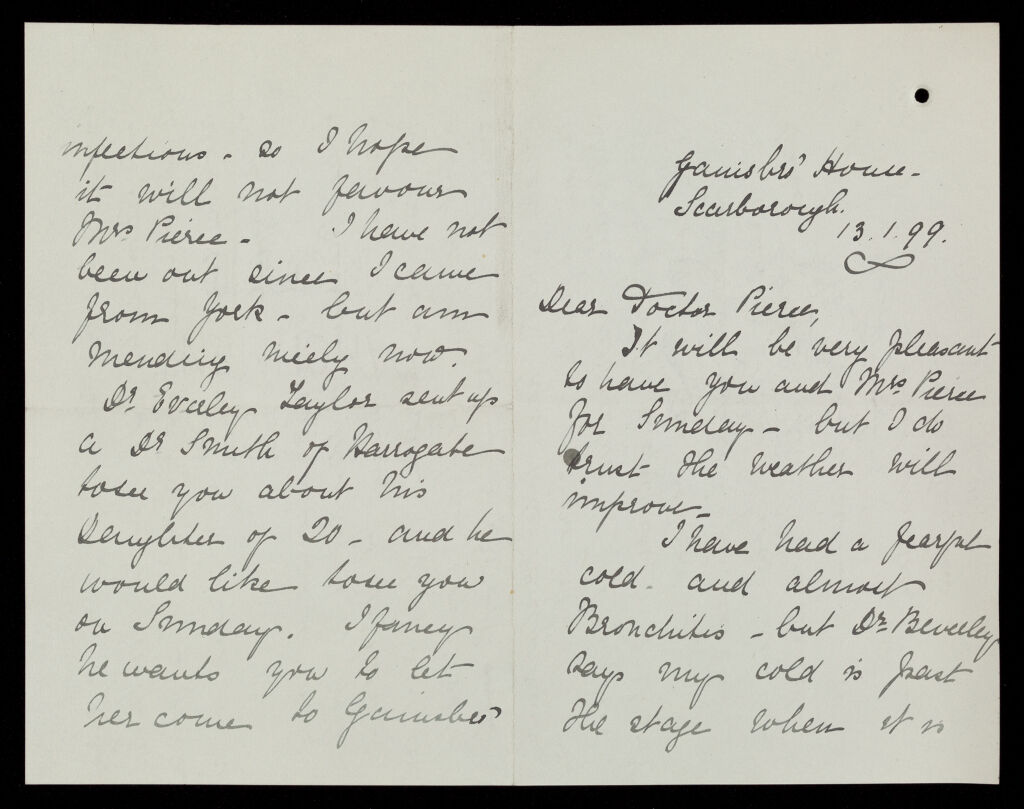 Gainsbro' House -
Scarborough.
13.1.99.
Dear Doctor Pierce,
It will be very pleasant
to have you and Mrs Pierce
for Sunday - but I do
trust the weather will
improve -
I have had a fearful
cold - and almost
Bronchitis - but Dr. Beverley
says my cold is past
the stage when it is
infectious - so I hope
it will not favour
Mrs Pierce - I have not
been out since I came
from York - but am
mending nicely now.
Dr. Taylor sent up
a Dr Smith of Harrogate
to see you about his
Daughter of 20 - and he
would like to see you
on Sunday. I fancy
he wants you to let
her come to Gainsbro'